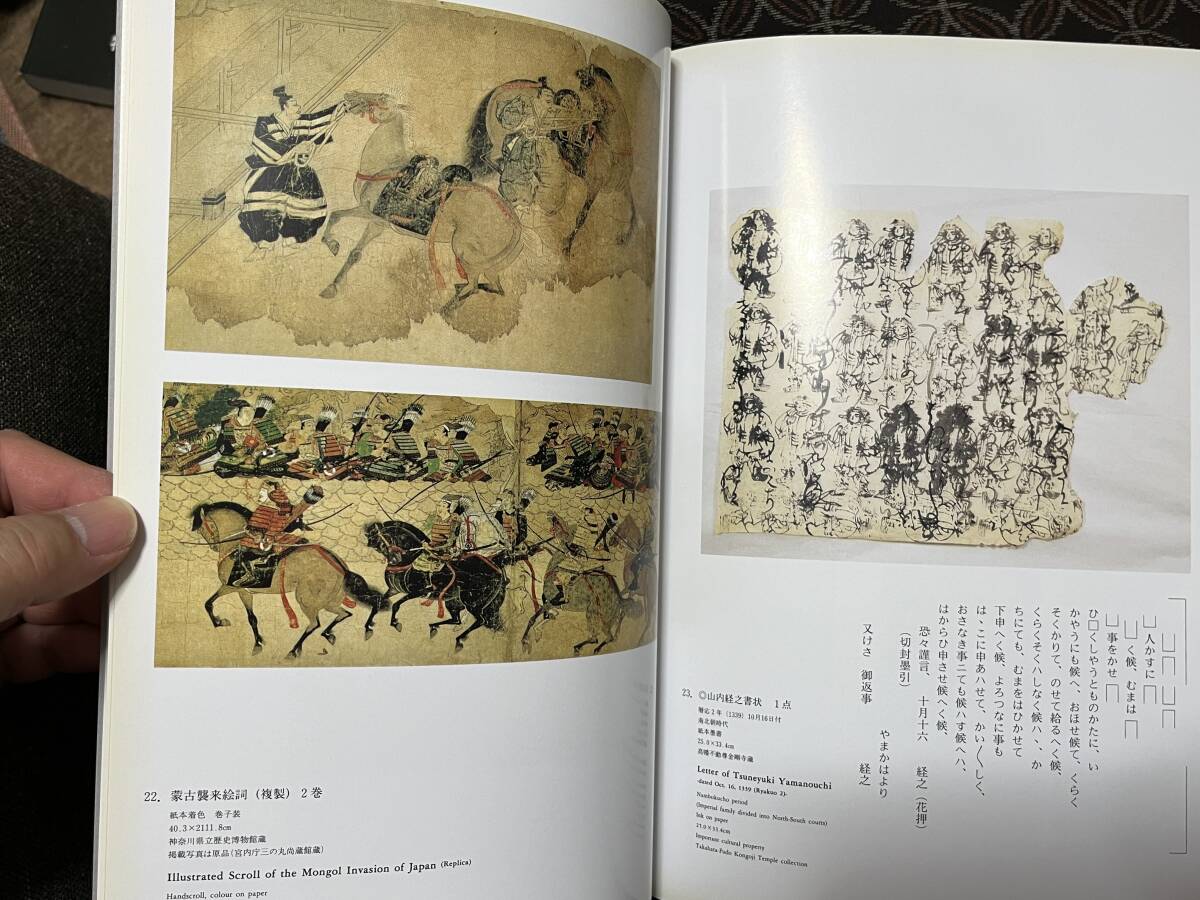 22. 蒙古襲来絵詞（複製）2巻
紙本着色　巻子装
40.3×2111.8cm
神奈川県立歴史博物館蔵
掲載写真は原品（宮内庁三の丸尚蔵館蔵）
Illustrated Scroll of the Mongol Invasion of Japan (Replica)
Handscroll, colour on paper
人かすに
く候、むまは
事をかせ
ひ□くしやうとものかたに、い
かやうにも候へ、おほせ候て、くらく
そくかりて、のせて給るへく候、
くらそくハしなく候ハ、、か
ちにても、むまをはひかせて
下申へく候、よろつなに事も
は、こに申あハせて、かい〳〵しく、
おさなき事ニても候ハす候へハ、
はからひ申させ候へく候、
恐々謹言、
十月十六　経之（花押）
（切封墨引）
やまかはより
又けさ　御返事　経之
23. ◎山内経之書状　1点
暦応2年（1339）10月16日付
南北朝時代
紙本墨書
25.0×33.4cm
高幡不動尊金剛寺蔵
Letter of Tsuneyuki Yamanouchi
-dated Oct. 16, 1339 (Ryakuo 2)-
Nambokucho period
(Imperial family divided into North-South courts)
Ink on paper
Important cultural property
Takahata-Fudo Kongoji Temple collection